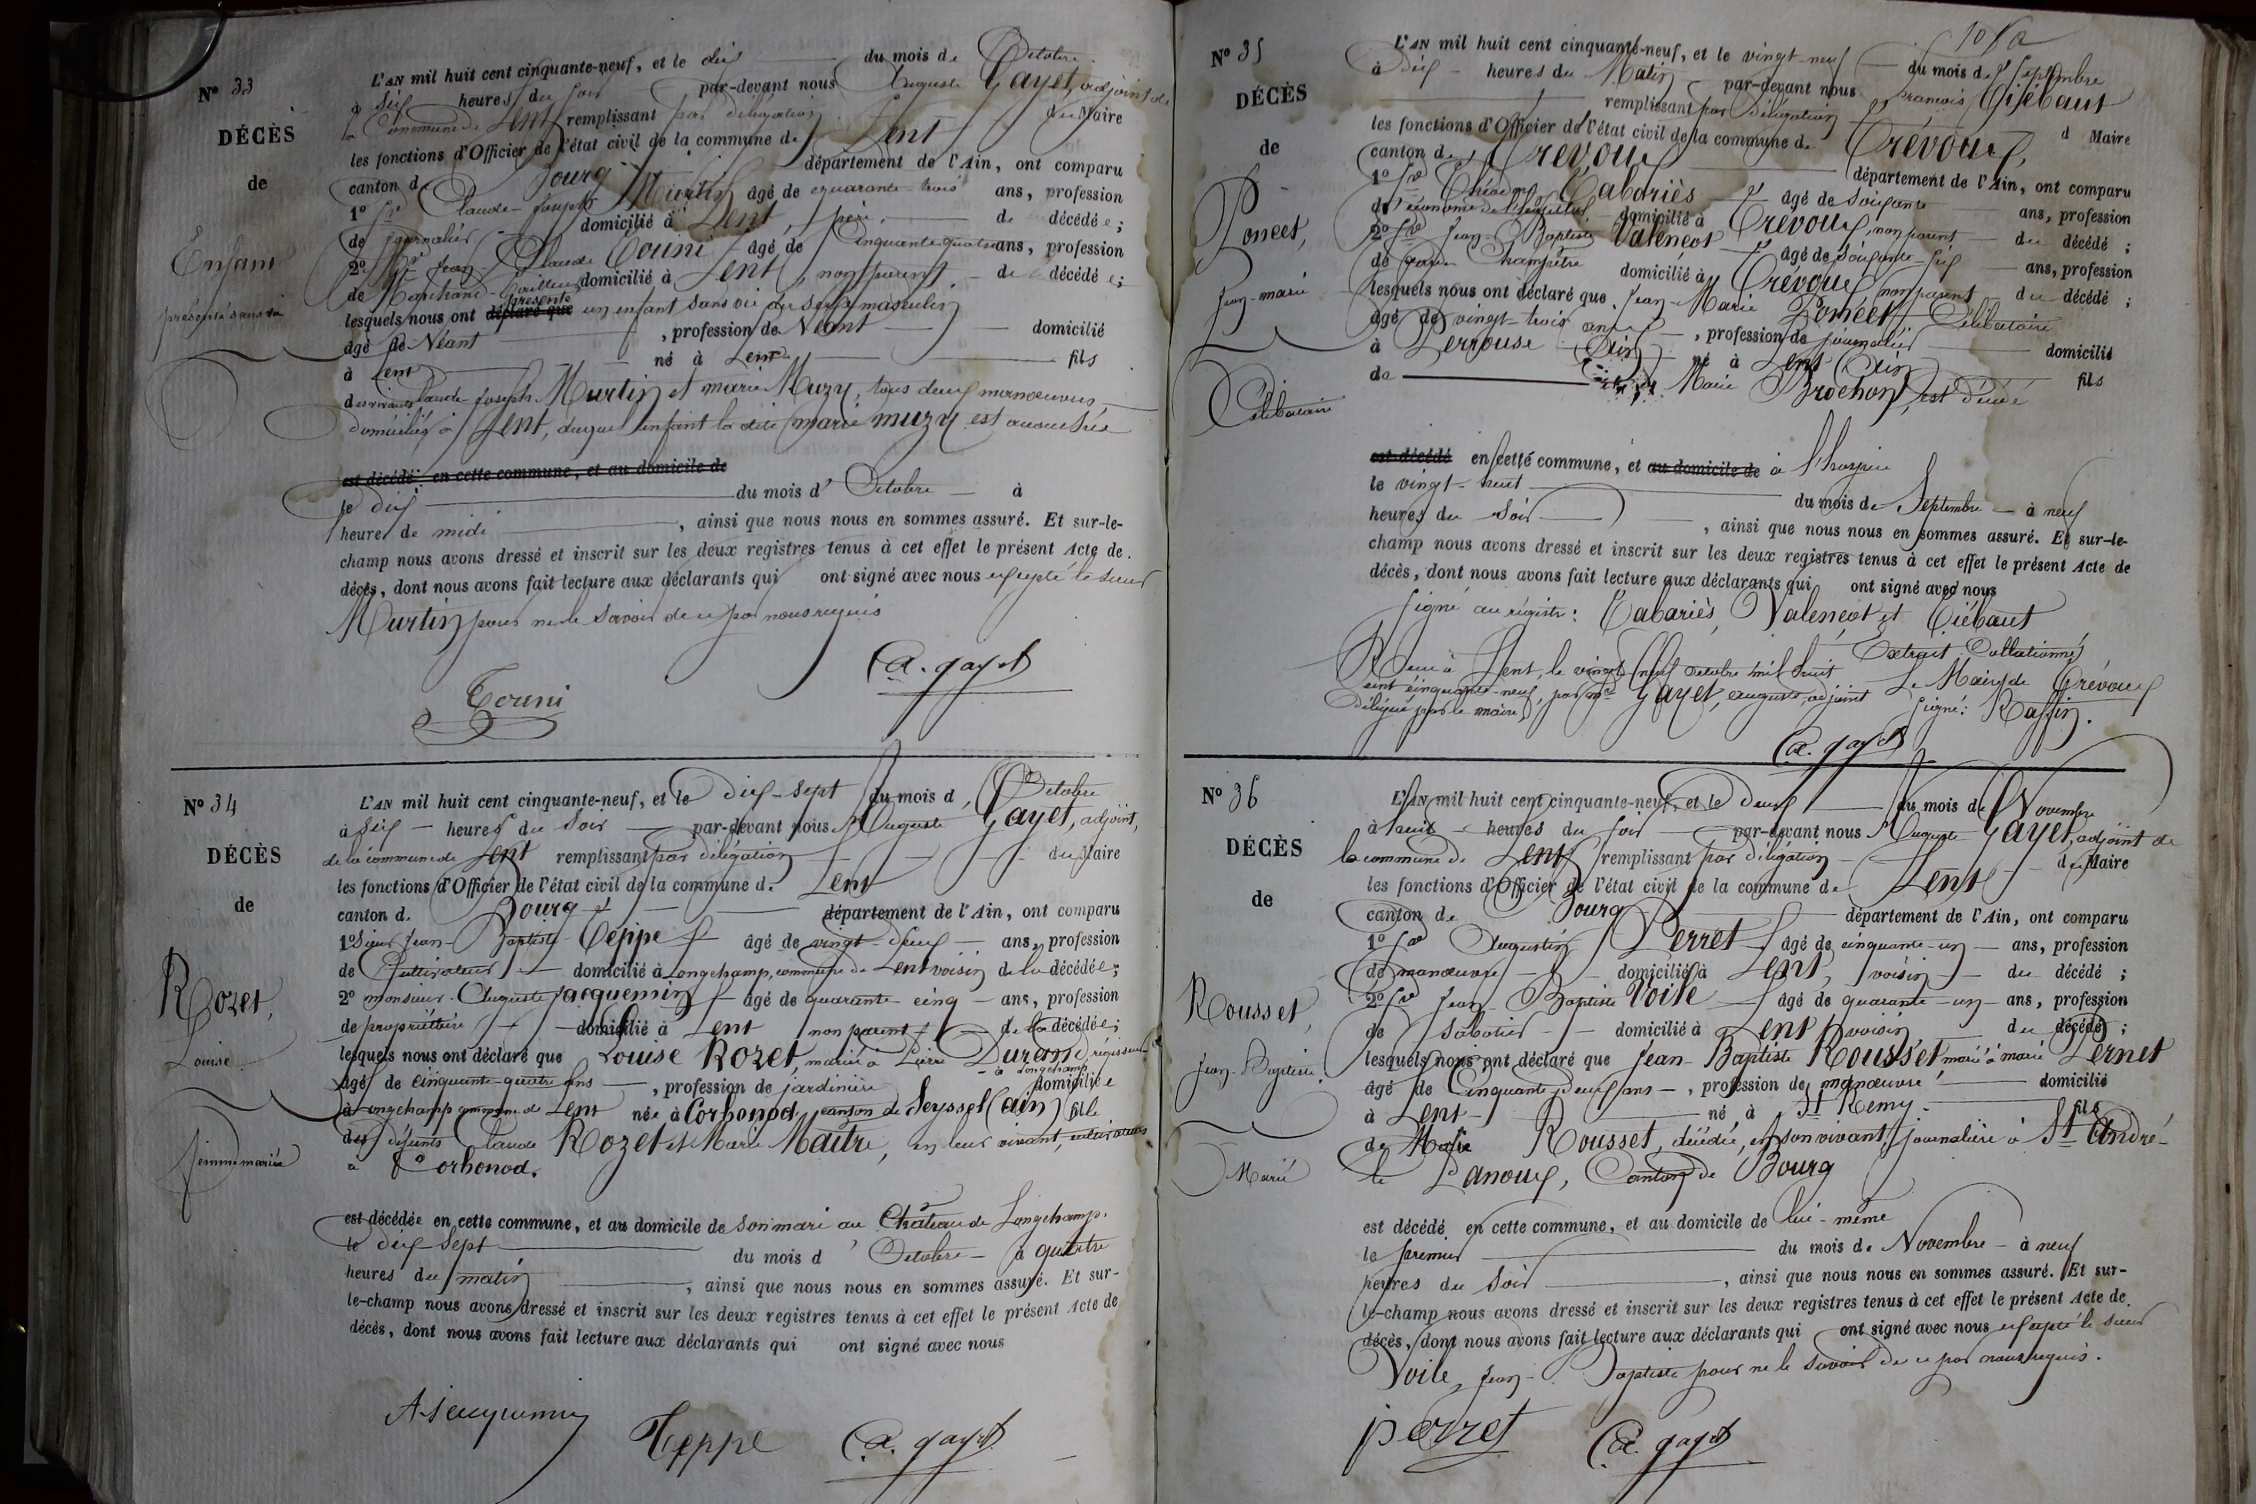 N° 33
DÉCÈS
de
Enfant
présenté sans vie
L'AN mil huit cent cinquante-neuf, et le dix du mois de Octobre
à six heures du soir par-devant nous Auguste Gayet, adjoint de
la Commune de Lent remplissant par délégation du Maire
les fonctions d'Officier de l'état civil de la commune de Lent
canton de Bourg département de l'Ain, ont comparu
1° Sr Claude-Joseph Murtin âgé de quarante-trois ans, profession
de journalier domicilié à Lent, père de décédée;
2° Sr Jean Claude Touni âgé de cinquante quatre ans, profession
de Marchand domicilié à Lent, non parent de décédée;
lesquels nous ont déclaré que présenté un enfant sans vie du sexe masculin
âgé de Néant, profession de Néant domicilié
à Lent né à Lent fils
des vivants Claude-Joseph Murtin et marie Muzy, tous deux manœuvres
domiciliés à Lent, duquel enfant la dite marie muzy est accouchée
est décédé en cette commune, et au domicile de
le dix du mois d'Octobre à
heure de midi, ainsi que nous nous en sommes assuré. Et sur-le-
champ nous avons dressé et inscrit sur les deux registres tenus à cet effet le présent Acte de
décès, dont nous avons fait lecture aux déclarants qui ont signé avec nous excepté le sieur
Murtin pour ne le savoir de ce par nous requis
A. gayet
Touni
N° 34
DÉCÈS
de
Rozet,
Louise
femme mariée
L'AN mil huit cent cinquante-neuf, et le dix-sept du mois d'Octobre
à six heures du soir par-devant nous Auguste Gayet, adjoint,
de la commune de Lent remplissant par délégation du Maire
les fonctions d'Officier de l'état civil de la commune de Lent
canton de Bourg département de l'Ain, ont comparu
1° Sieur Jean-Baptiste Teppe âgé de vingt-deux ans, profession
de Cultivateur domicilié à Longchamp, commune de Lent voisin de la décédée;
2° monsieur Auguste Jacquemin âgé de quarante cinq ans, profession
de propriétaire domicilié à Lent non parent de la décédée;
lesquels nous ont déclaré que Louise Rozet, mariée à Pierre Durand, régisseur
à Longchamp
âgée de cinquante-quatre ans, profession de jardinière domiciliée
à Longchamp commune de Lent née à Corbonod, canton de Seyssel (ain) fille
des défunts Claude Rozet et Marie Maître, en leur vivant, cultivateurs
à Corbonod.
est décédée en cette commune, et au domicile de son mari au Château de Longchamp.
le dix sept du mois d'Octobre à quatre
heures du matin, ainsi que nous nous en sommes assuré. Et sur-
le-champ nous avons dressé et inscrit sur les deux registres tenus à cet effet le présent Acte de
décès, dont nous avons fait lecture aux déclarants qui ont signé avec nous
A Jacquemin
Teppe
A. gayet
N° 35
DÉCÈS
de
Poncet,
Jean-marie
Célibataire
L'AN mil huit cent cinquante-neuf, et le vingt-neuf du mois de Septembre
à dix heures du Matin par-devant nous francois Giébaut
remplissant par délégation d Maire
les fonctions d'Officier de l'état civil de la commune de Trévoux
canton de Trévoux, département de l'Ain, ont comparu
1° Sr Cabariès âgé de soixante ans, profession
d'économe de l'hospice domicilié à Trévoux, non parent du décédé;
2° Sr Jean-Baptiste Valençot âgé de soixante-six ans, profession
de garde Champêtre domicilié à Trévoux non parent du décédé;
lesquels nous ont déclaré que Jean-Marie Poncet Célibataire
âgé de vingt-trois ans, profession de journalier domicilié
à Perrouse (Ain) né à Lent (Ain) fils
de Marie Brochon, est décédé
est décédé en cette commune, et au domicile de à l'hospice
le vingt-huit du mois de Septembre à neuf
heures du soir, ainsi que nous nous en sommes assuré. Et sur-le-
champ nous avons dressé et inscrit sur les deux registres tenus à cet effet le présent Acte de
décès, dont nous avons fait lecture aux déclarants qui ont signé avec nous
Signé au régistre: Cabariès, Valençot et Giébaut
Extrait Collationné
Reçu à Lent, le vingt neuf octobre mil huit
cent cinquante-neuf, par mr Gayet, auguste, adjoint
délégué par le maire
Le Maire de Trévoux
Signé: Raffin.
A. gayet
N° 36
DÉCÈS
de
Rousset,
Jean-Baptiste
Marié
L'AN mil huit cent cinquante-neuf, et le deux du mois de Novembre
à huit heures du soir par-devant nous Auguste Gayet, adjoint de
la commune de Lent remplissant par délégation du Maire
les fonctions d'Officier de l'état civil de la commune de Lent
canton de Bourg département de l'Ain, ont comparu
1° Sr Augustin Perret âgé de cinquante-un ans, profession
de manœuvre domicilié à Lent, voisin du décédé;
2° Sr Jean-Baptiste Voile âgé de quarante-un ans, profession
de sabotier domicilié à Lent voisin du décédé;
lesquels nous ont déclaré que Jean-Baptiste Rousset marié à marie Pernet
âgé de Cinquante deux ans, profession de manœuvre domicilié
à Lent né à St Remy fils
de Marie Rousset, décédée, en son vivant journalière à St André-
le Panoux, Canton de Bourg
est décédé en cette commune, et au domicile de lui-même
le premier du mois de Novembre à neuf
heures du soir, ainsi que nous nous en sommes assuré. Et sur-
le-champ nous avons dressé et inscrit sur les deux registres tenus à cet effet le présent Acte de
décès, dont nous avons fait lecture aux déclarants qui ont signé avec nous excepté le sieur
Voile, Jean-Baptiste pour ne le savoir de ce par nous requis.
perret
A. gayet